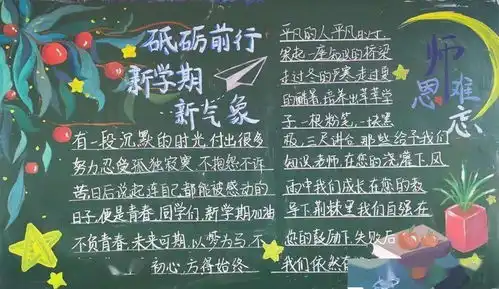 砥砺前行
新学期
新气象
有一段沉默的时光付出很多
努力忍受孤独寂寞 不抱怨不诉
苦日后说起连自己都能被感动的
日子便是青春.同学们,新学期加油
不负青春.未来可期.以梦为马.不
初心.方得始终
平凡的人平凡的
架起一座知识的桥梁
走过冬的严寒.走过夏
的酷暑.培养出莘莘学
子.一根粉笔.一块黑
板,三尺讲台.那些给予我们
知识老师,在您的浇灌下.风
雨中我们成长在您的教
导下.荆棘里我们自强在
您的鼓励下.失败后
我们依然
师恩难忘